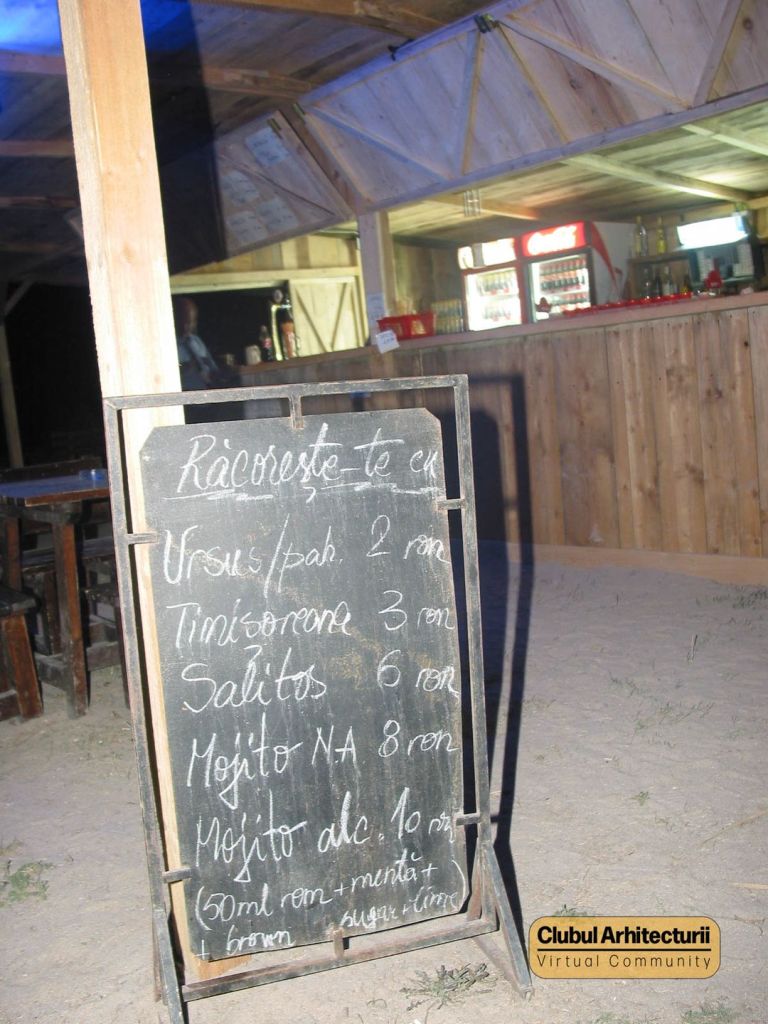 Coca-Cola
Răcorește-te cu
Ursus/pah. 2 ron
Timișoreana 3 ron
Salitos 6 ron
Mojito NA 8 ron
Mojito alc. 10 ron
(50ml rom + mentă +
+ brown sugar + lime)
Clubul Arhitecturii
Virtual Community